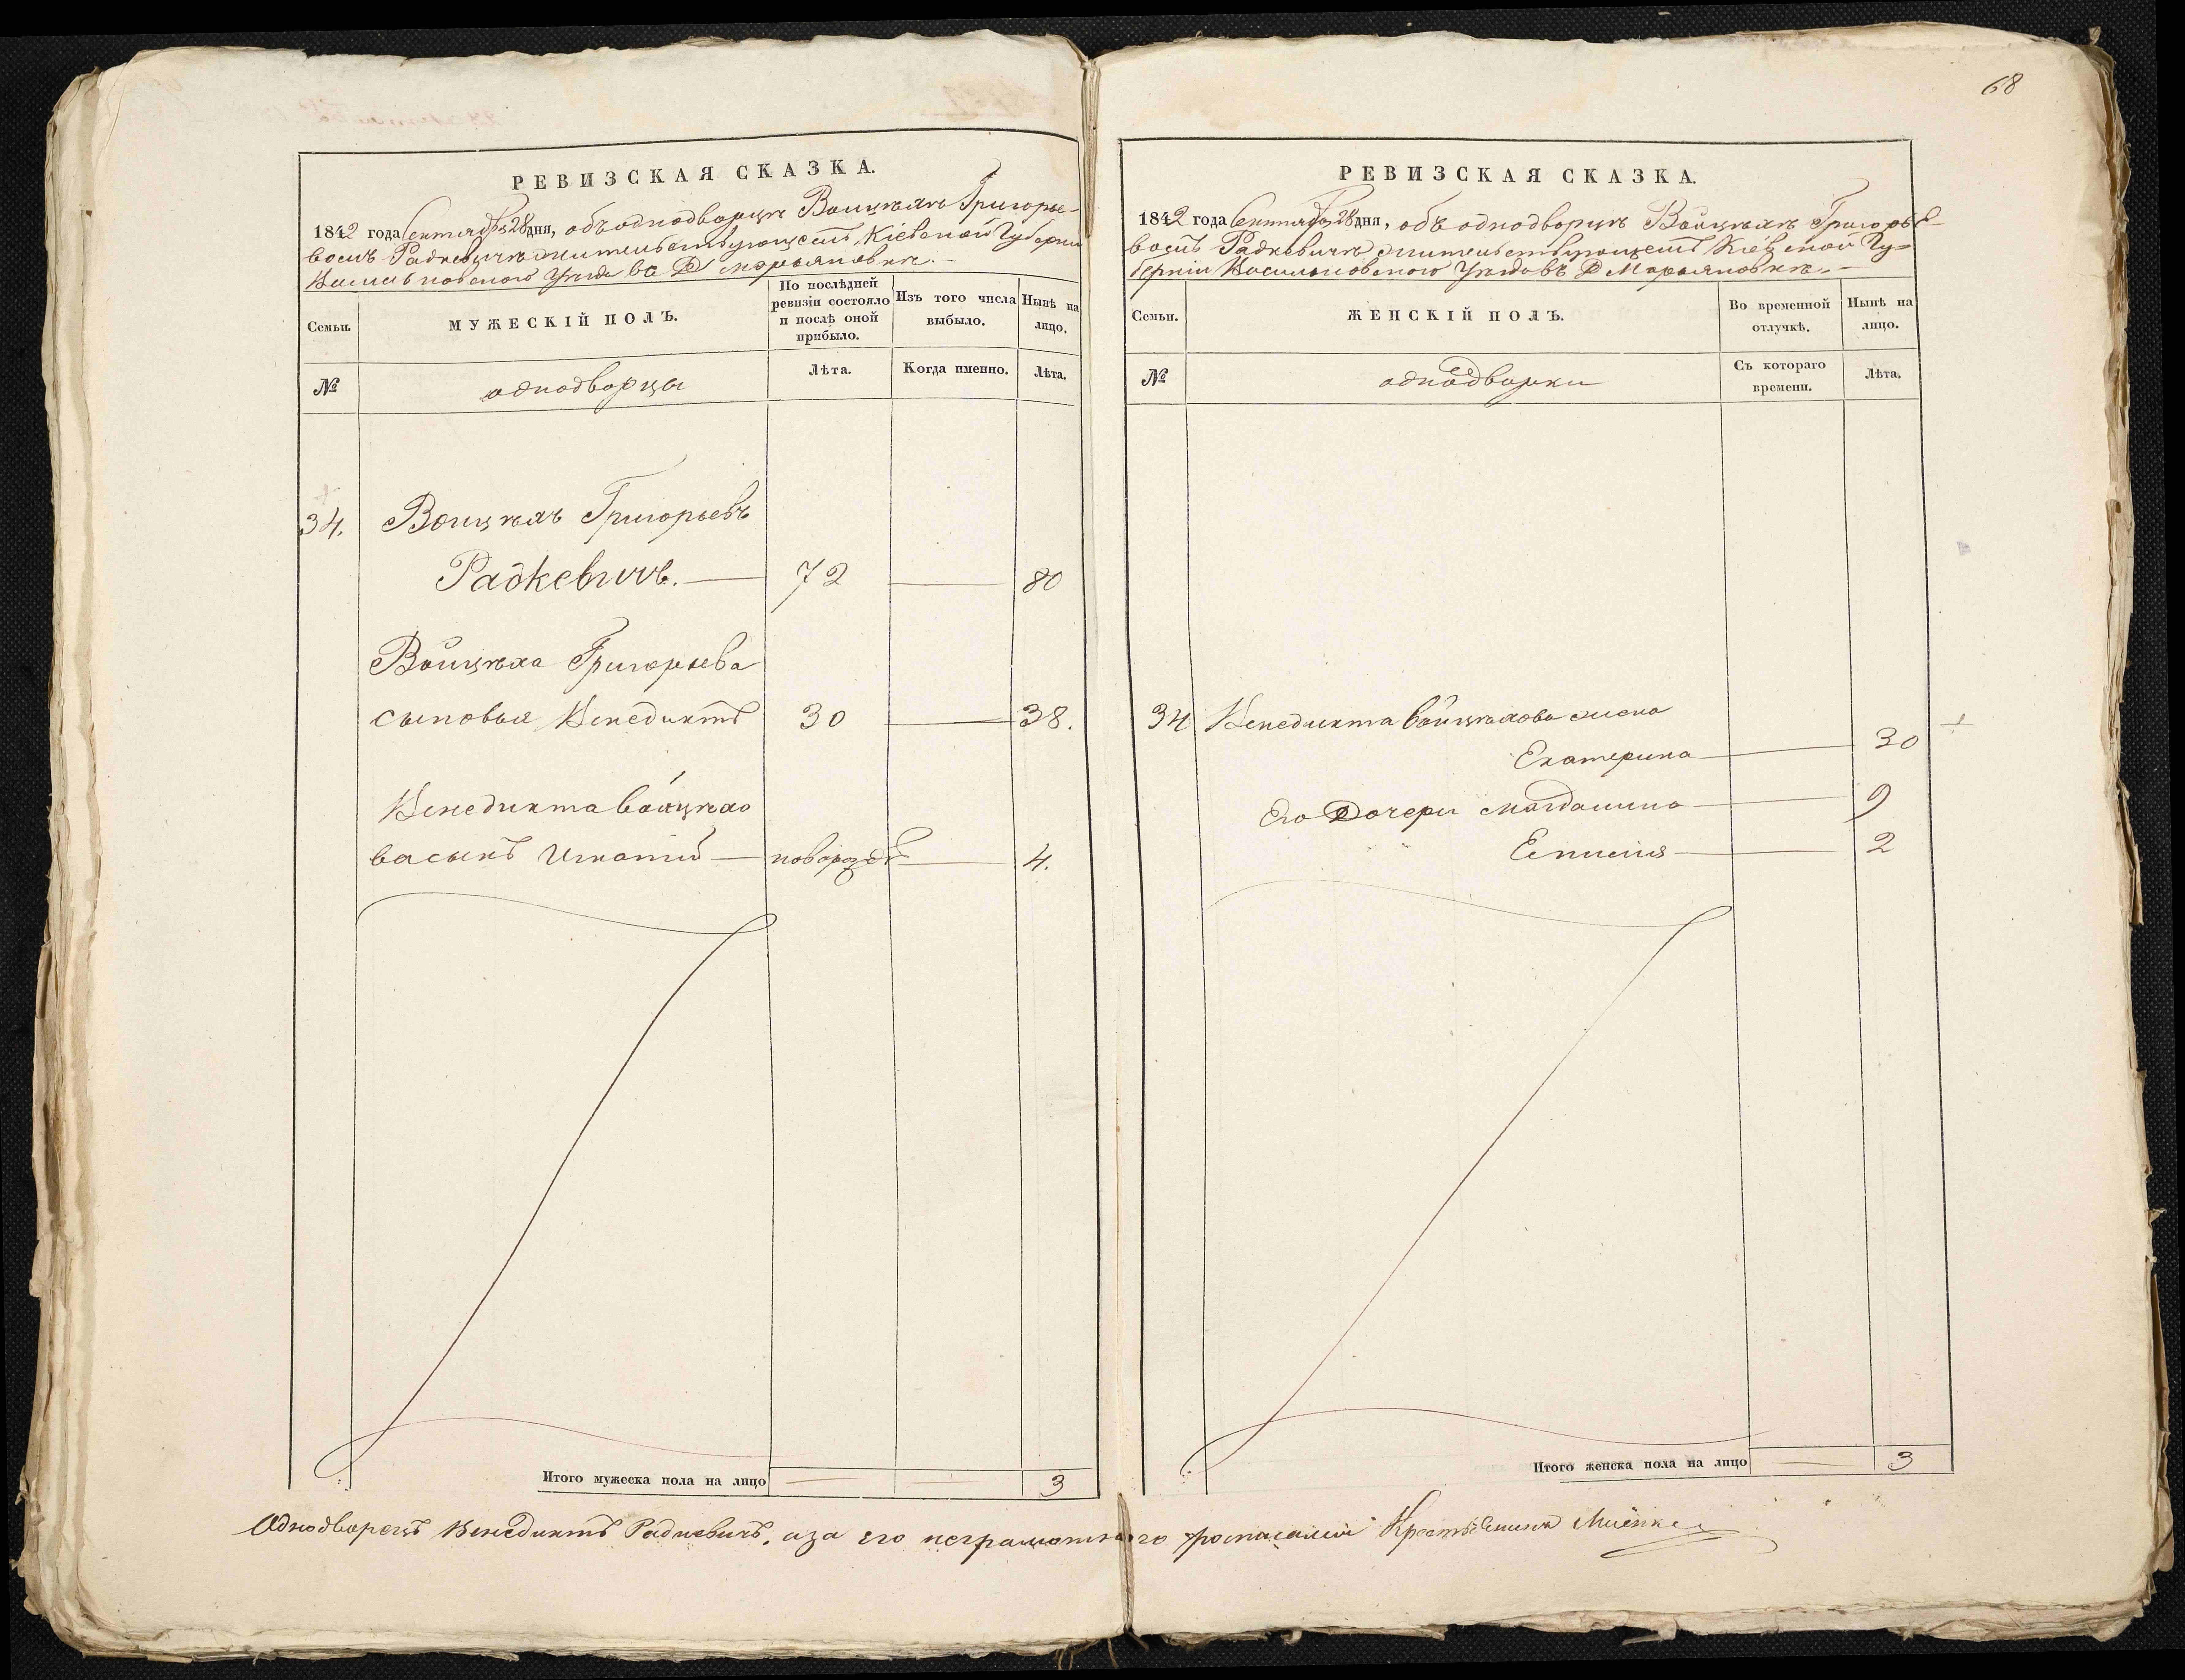 68
РЕВИЗСКАЯ СКАЗКА.
1842 года Сентября 28 дня, объ однодворцѣ Войцѣхѣ Григорье-
вомъ Радкевичѣ жительствующемъ Кіевской Губерніи
Васильковскаго Уѣзда въ Д Марьяновкѣ.
Семьи.
МУЖЕСКІЙ ПОЛЪ.
По послѣдней ревизіи состояло и послѣ оной прибыло.
Изъ того числа выбыло.
Нынѣ на лицо.
№
однодворцы
Лѣта.
Когда именно.
Лѣта.
34. Войцѣхъ Григорьевъ
Радкевичъ. — 72 — 80
Войцѣха Григорьева
сыновья Венедиктъ 30 — 38.
Венедикта Войцѣхо
ва сынъ Игнатій — новорозд — 4.
Итого мужеска пола на лицо — — 3
РЕВИЗСКАЯ СКАЗКА.
1842 года Сентября 28 дня, объ однодворцѣ Войцѣхѣ Григорье-
вомъ Радкевичѣ жительствующемъ Кіевской Гу-
берніи Васильковского Уѣзда въ Д Марьяновкѣ. —
Семьи.
ЖЕНСКІЙ ПОЛЪ.
Во временной отлучкѣ.
Нынѣ на лицо.
№
однодворки
Съ котораго времени.
Лѣта.
34 Венедикта Войцѣхова жена
Екатерина — 30
Его Дочери Магдалина — 9
— 2
Итого женска пола на лицо — 3
Однодворецъ Венедиктъ Радкевичъ, а за его неграмотного